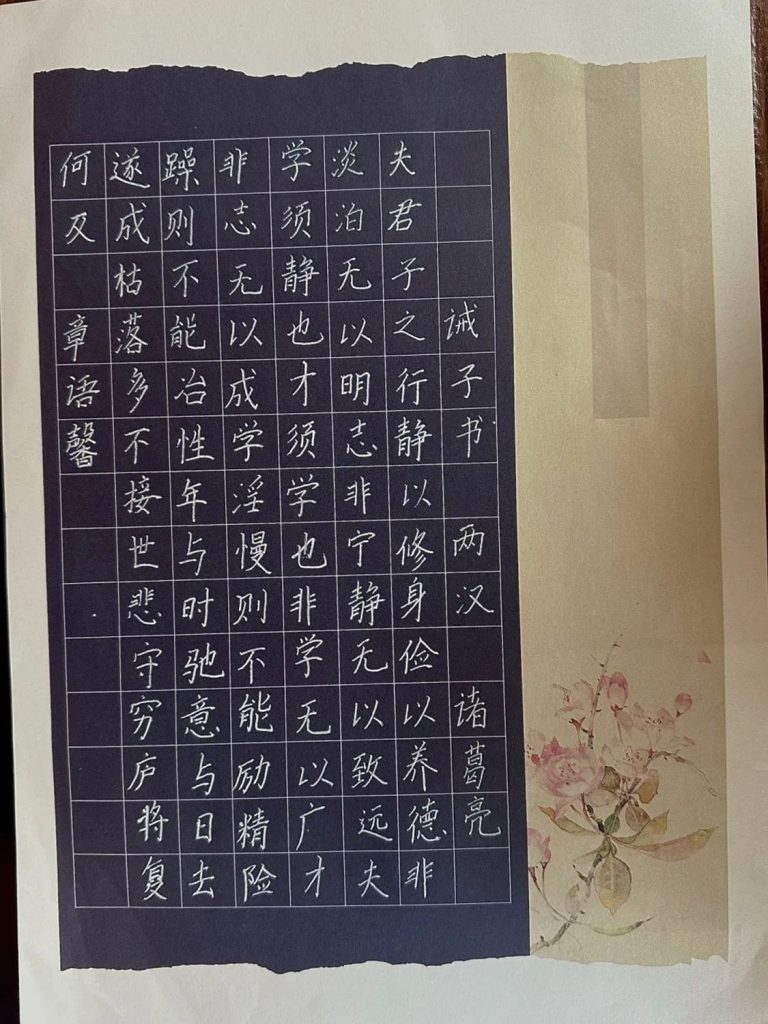 诫子书 两汉 诸葛亮
夫君子之行静以修身俭以养德非
淡泊无以明志非宁静无以致远夫
学须静也才须学也非学无以广才
非志无以成学淫慢则不能励精险
躁则不能冶性年与时驰意与日去
遂成枯落多不接世悲守穷庐将复
何及 章语馨